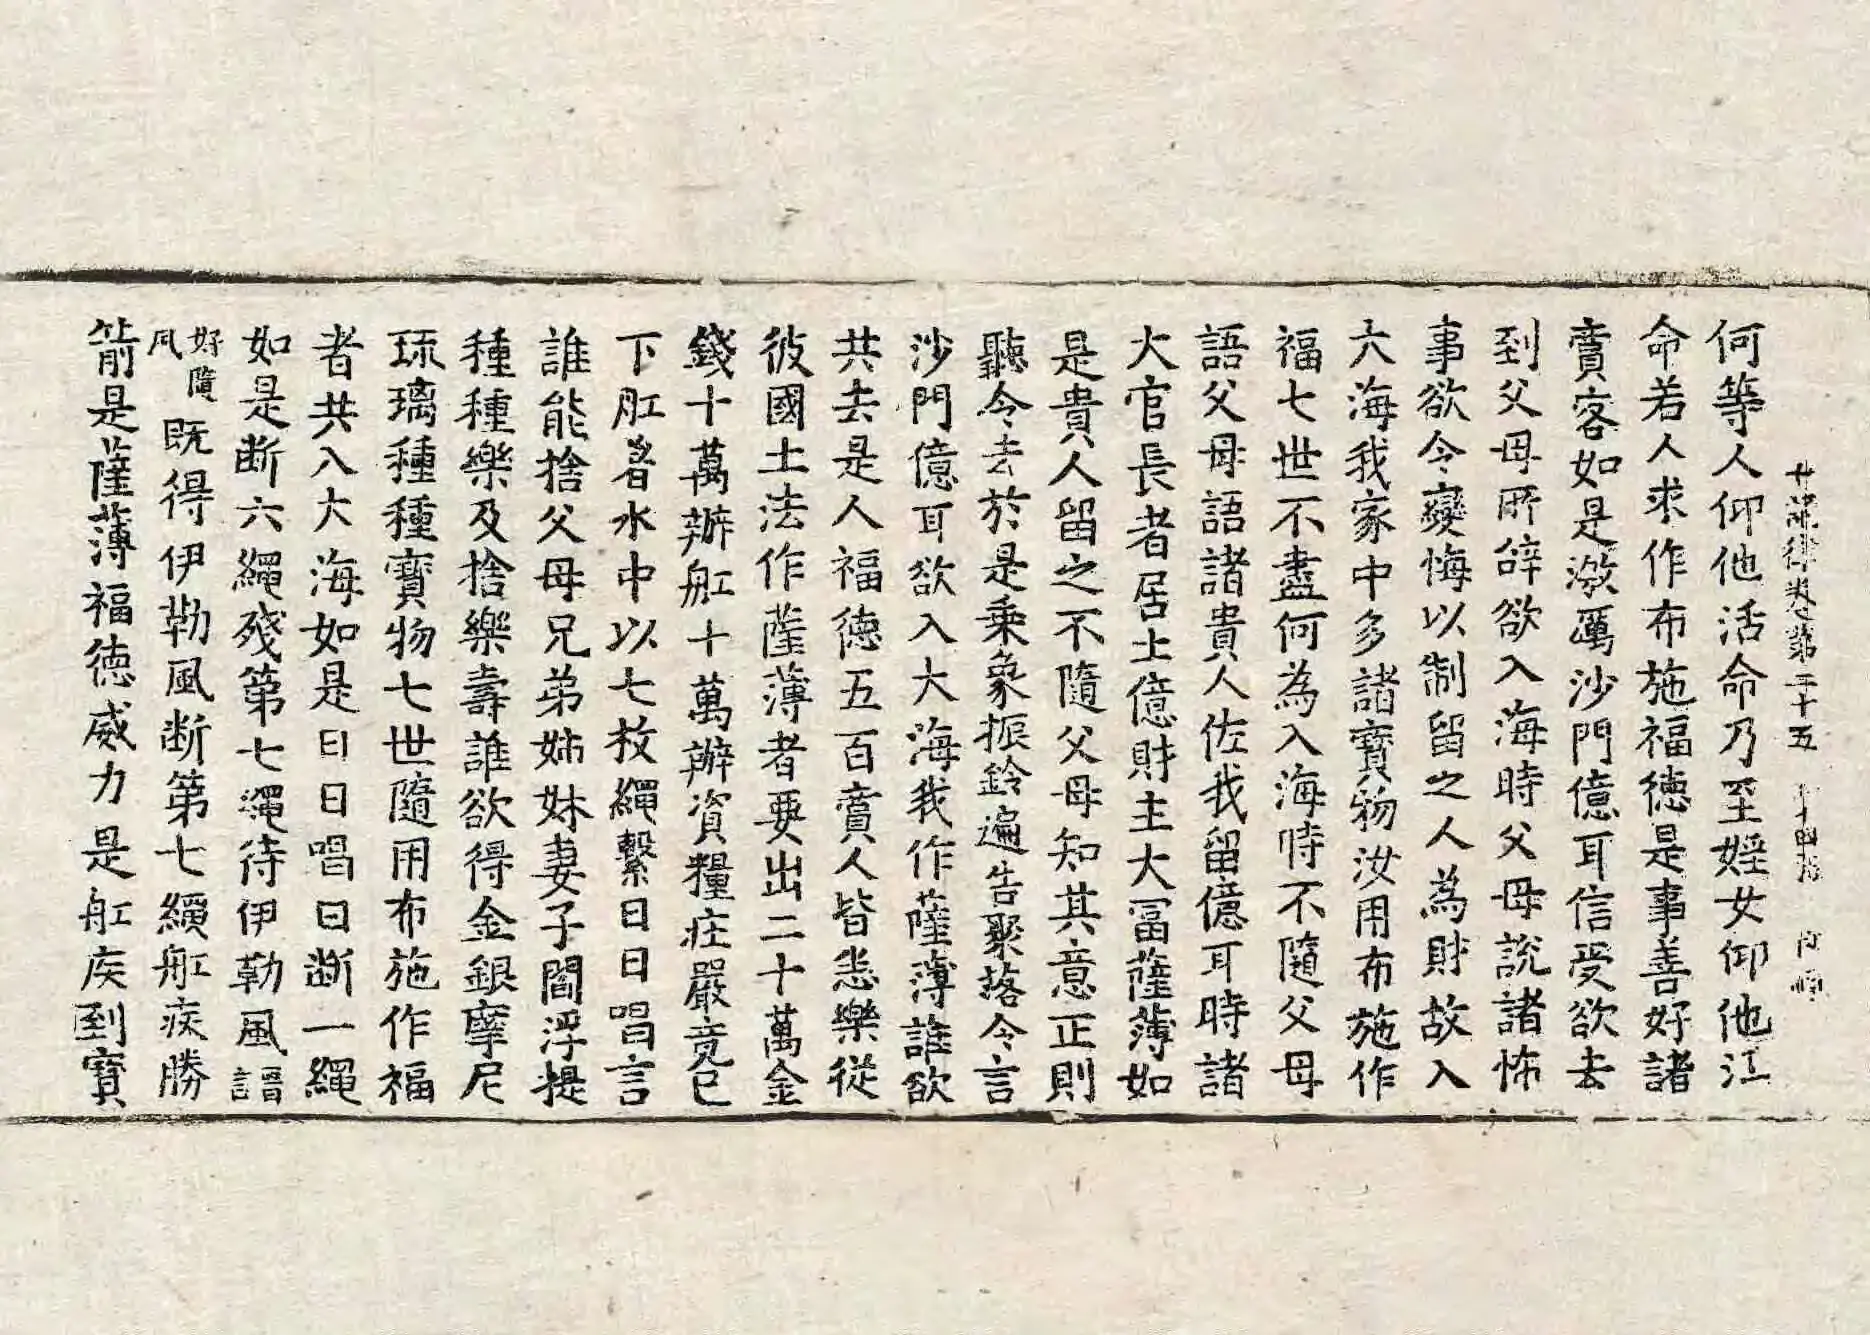 十誦律卷第二十五
何等人仰他活命乃至婬女仰他活
命若人求作布施福德是事善好諸
賣客如是激厲沙門億耳信受欲去
到父母所辞欲入海時父母說諸怖
事欲令變悔以制留之人為財故入
大海我家中多諸寶物汝用布施作
福七世不盡何為入海時不隨父母
語父母語諸貴人佐我留億耳時諸
大官長者居士億財主大冨薩薄如
是貴人留之不隨父母知其意正則
聽令去於是乗象振鈴遍告聚落令言
沙門億耳欲入大海我作薩薄誰欲
共去是人福德五百賣人皆悉樂從
彼國土法作薩薄者要出二十萬金
錢十萬辦舡十萬辦資糧庄嚴竟已
下舡著水中以七枚繩繫日日唱言
誰能捨父母兄弟姊妹妻子閻浮提
種種樂及捨樂壽誰欲得金銀摩尼
琉璃種種寶物七世隨用布施作福
者共入大海如是日日唱日断一繩
如是断六繩殘第七繩待伊勒風謂
好隨風既得伊勒風断第七繩舡疾勝
箭是薩薄福德威力是舡疾到寶